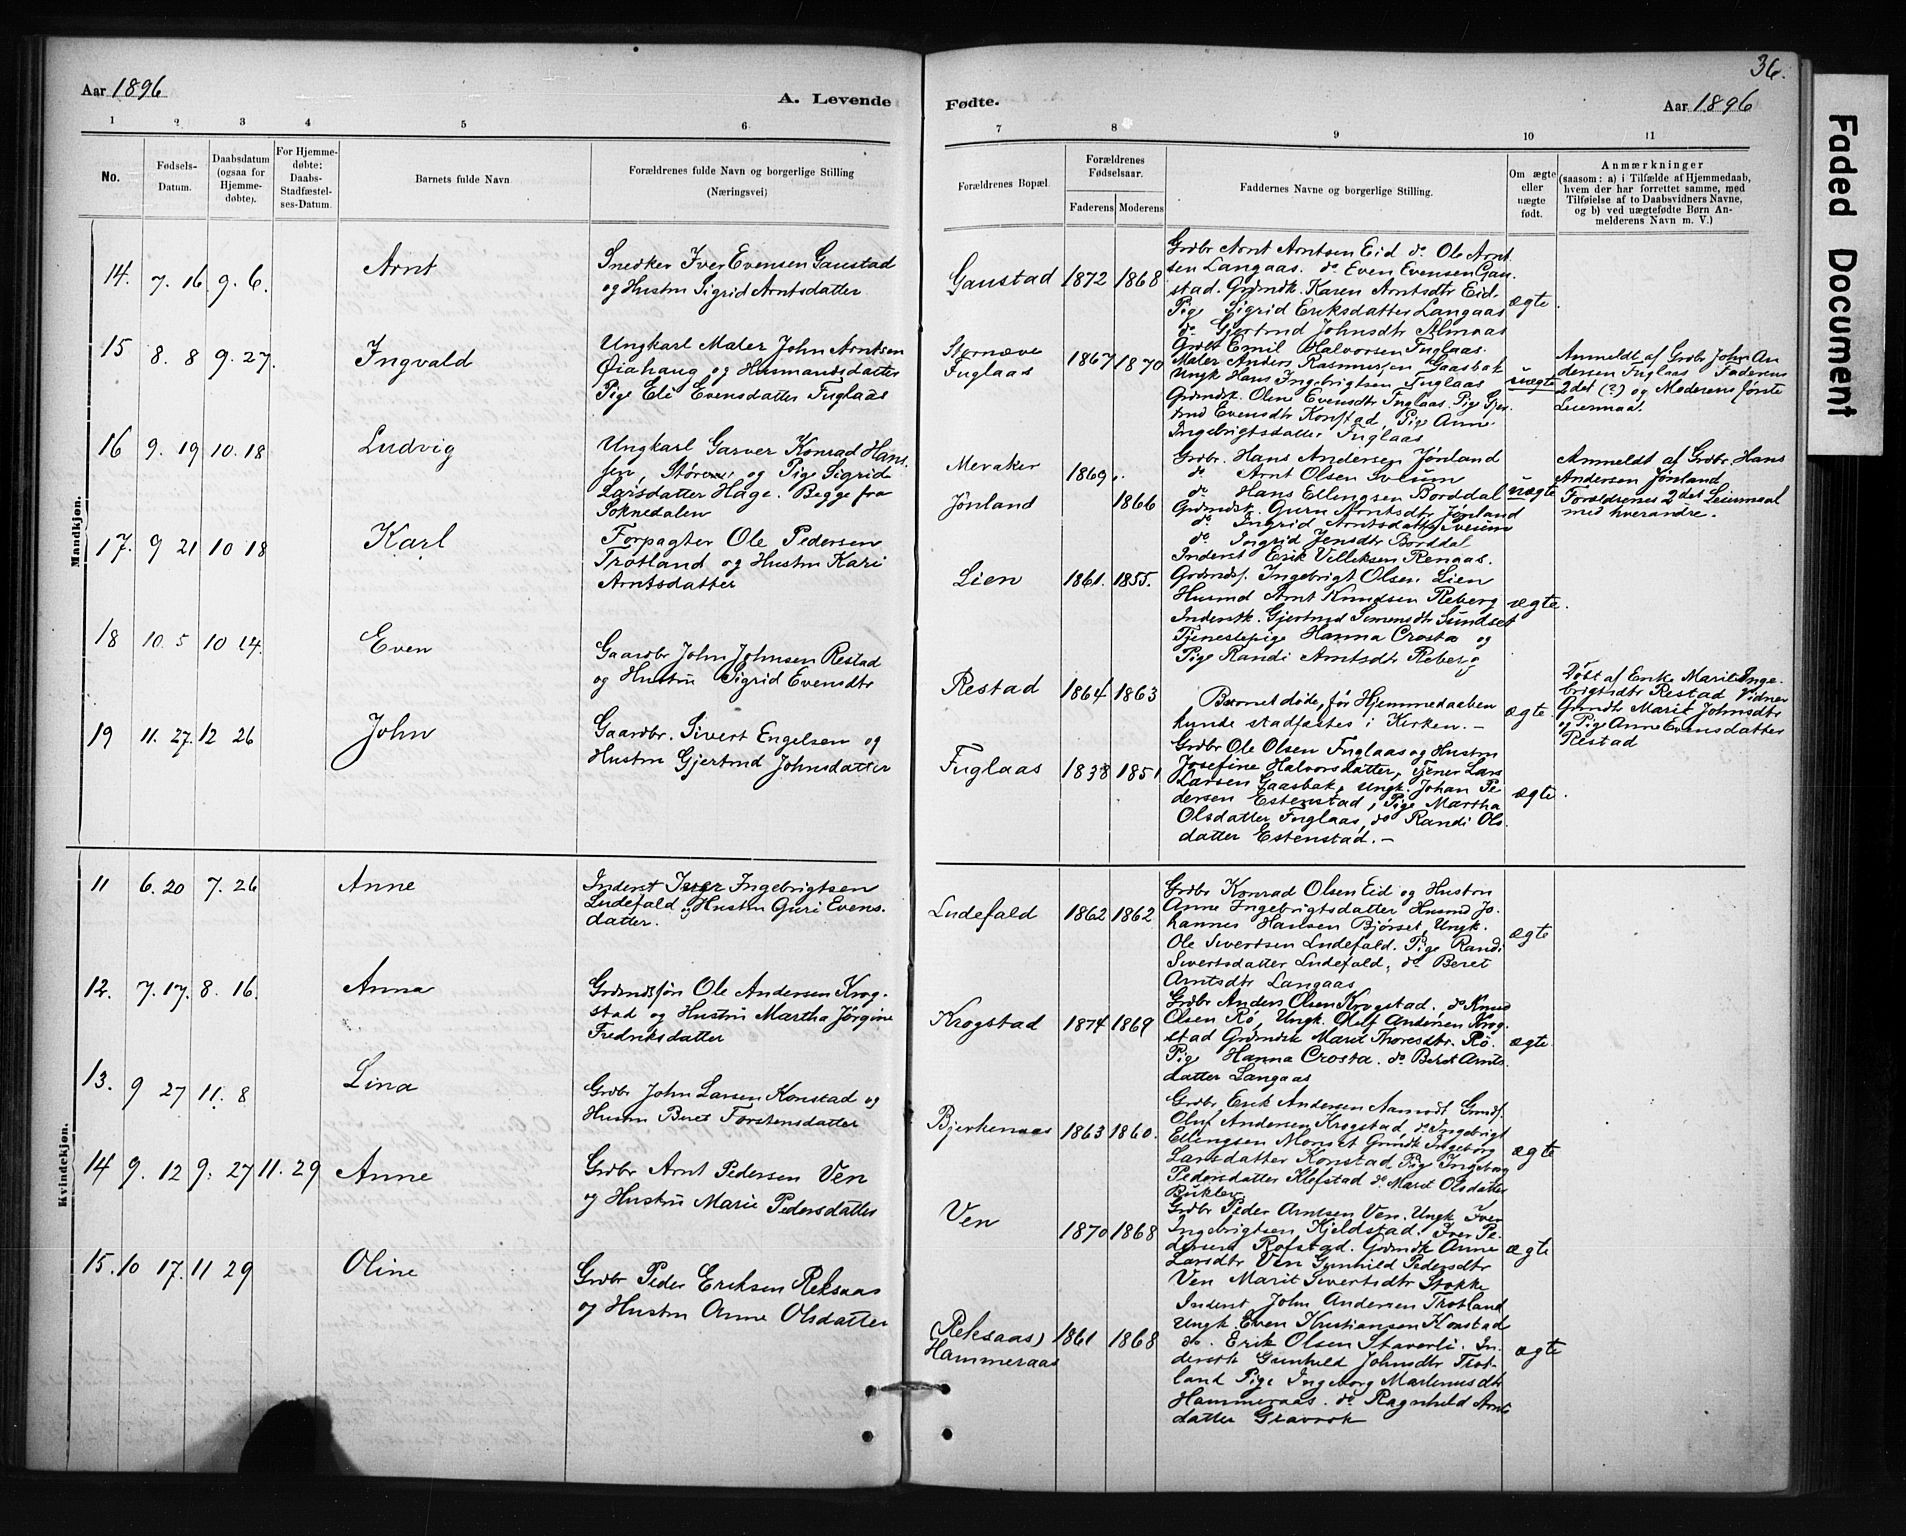 Aar 1896
A. Levende
Fødte.
Aar 1896
36.
Faded Document
1 2 3 4 5 6 7 8 9 10 11
No.
Fødsels-
Datum.
Daabsdatum
(ogsaa for
Hjemme-
døbte).
For Hjemme-
døbte:
Daabs-
Stadfæstel-
ses-Datum.
Barnets fulde Navn
Forældrenes fulde Navn og borgerlige Stilling
(Næringsvei)
Forældrenes Bopæl.
Forældrenes
Fødselsaar.
Faderens Moderens
Faddernes Navne og borgerlige Stilling.
Om ægte
eller
uægte
født.
Anmærkninger
(saasom: a) i Tilfælde af Hjemmedaab,
hvem der har forrettet samme, med
Tilføielse af to Daabsvidners Navne,
og b) ved uægtefødte Børn An-
melderens Navn m. V.)
Mandkjøn.
14. 7. 16. 9. 6. Arnt
Snedker Iver Evensen Gaustad
og Hustru Sigrid Arntsdatter
Gaustad 1872 1868
Grdbr Arnt Arntsen Eid do Ole Arnt
sen Langaas. do Even Evensen Gau-
stad. Grdmdk. Karen Arntsdtr Eid.
Pige Sigrid Eriksdatter Langaas
do Gjertrud Johnsdtr Almaas
ægte.
15 8. 8 9. 27. Ingvald
Ungkarl Maler John Arntsen
Øiahaug og Husmandsdatter
Pige Eli Evensdatter Fuglaas
Fuglaas 1867 1870
Grdbr Emil Halvorsen Fuglaas.
Maler Anders Rasmussen Gaasbak
Ungk Hans Ingebrigtsen Fuglaas
Grdmdk. Oline Evensdtr Fuglaas. Pige Gjer-
trud Evensdtr Konstad, Pige Anne
Ingebrigtsdatter Fuglaas
uægte
Anmeldt af Grdbr John An
dersen Fuglaas Faderens
2det (?) og Moderens første
Leiermaal.
16 9. 19 10. 18 Ludvig
Ungkarl Garver Konrad Hans-
sen, Støren og Pige Sigrid
Larsdatter Hage. Begge fra
Soknedalen
Meraker 1869.
Jønland 1866
Grdbr. Hans Andersen Jønland
do Arnt Olsen Solum
do Hans Ellingsen Borddal
Grdmdk. Guru Arntsdtr Jønland
do Ingrid Arntsdatter
do Ingrid Jensdtr Borddal
uægte
Anmeldt af Grdbr. Hans
Andersen Jønland
Forældrenes 2det Leiermaal
med hverandre.
17. 9 21 10 18 Karl
Forpagter Ole Pedersen
Trotland og Hustru Kari
Arntsdatter
Lien 1861. 1855.
Inderst Erik Villiksen Renaas.
Grdmds. Ingebrigt Olsen Lien
Husmd Arnt Knudsen Reberg
Inderstk. Gjertrud Simensdtr Sundset
Tjenestepige Hanna Crosta og
Pige Randi Arntsdtr Reberg
ægte.
18 10. 5 10 24. Even
Gaardbr John Johnsen Restad
og Hustru Sigrid Evensdtr
Restad 1864 1863
Barnet døde, før Hjemmedaaben
kunde stadfæstes i Kirken.-
ægte.
Døbt af Enke Marit Inge-
brigtsdtr Restad Vidner
Grdmdtr Marit Johnsdtr
og Pige Anne Evensdatter
Restad
19 11. 27. 12 26 John
Gaardbr. Sivert Engelsen og
Hustru Gjertrud Johnsdatter
Fuglaas 1838 1851
Grdbr Ole Olsen Fuglaas og Hustru
Josefine Halvorsdatter, Tjener Lars
Larsen Gaasbak, Ungk. Johan Pe
dersen Estenstad, Pige Martha
Olsdatter Fuglaas, do Randi Ols
datter Estenstad.-
ægte.
Kvindekjøn.
11 6. 20 7. 26 Anne
Inderst Iver Ingebrigtsen
Ludefald og Hustru Guri Evens-
datter.
Ludefald 1862 1862
Grdbr Konrad Olsen Eid og Hustru
Anne Ingebrigtsdatter Husmd Jo-
hannes Hansen Bjørset, Ungk.
Ole Sivertsen Ludefald. Pige Randi
Sivertsdatter Ludefald, do Beret
Arntsdtr Langaas
ægte
12. 7. 17. 8. 16. Anna
Grdmdsøn Ole Andersen Krog-
stad og Hustru Martha Jørgine
Fredriksdatter
Krogstad 1874 1869
Grdbr Anders Olsen Krogstad. do Knud
Olsen Rø, Ungk. Oluf Andersen Krog-
stad Grdmdk Marit Thoresdtr. Rø.
Pige Hanna Crosta. do Beret Arnts
datter Langaas
ægte.
13. 9 27 11. 8 Lina
Grdbr John Larsen Konstad og
Hustru Beret Torstensdatter
Bjerkenaas 1863 1860.
Grdbr Erik Andersen Aamodt Grmds.
Oluf Andersen Krogstad, do Ingebrigt
Ellingsen Monset Grmdk Ingeborg
Larsdatter Konstad Pige Ingeborg
Pedersdatter Klefstad do Marit Olsdatter
ægte
14 9. 12 9. 27 11. 29 Anne
Grdbr Arnt Pedersen Ven
og Hustru Marie Pedersdatter
Ven 1870 1868
Grdbr Peder Arntsen Ven. Ungk Iver
Ingebrigtsen Kjeldstad. Iver Pe-
dersen Rofstad. Grdmdk Anne
Larsdtr Ven Gunhild Pedersdtr
Ven Marit Sivertsdtr Stokke
ægte
15. 10 17. 11 29 Oline
Grdbr Peder Eriksen Reksaas
og Hustru Anne Olsdatter
(Reksaas) 1861 1868
Hammeraas
Inderst John Andersen Trotland
Ungk. Even Kristiansen Konstad
do. Erik Olsen Staverli. In-
derstk Gunhild Johnsdtr Trot-
land Pige Ingeborg Martinusdtr
Hammeraas. do Ragnhild Arnts
datter Gravrok
ægte